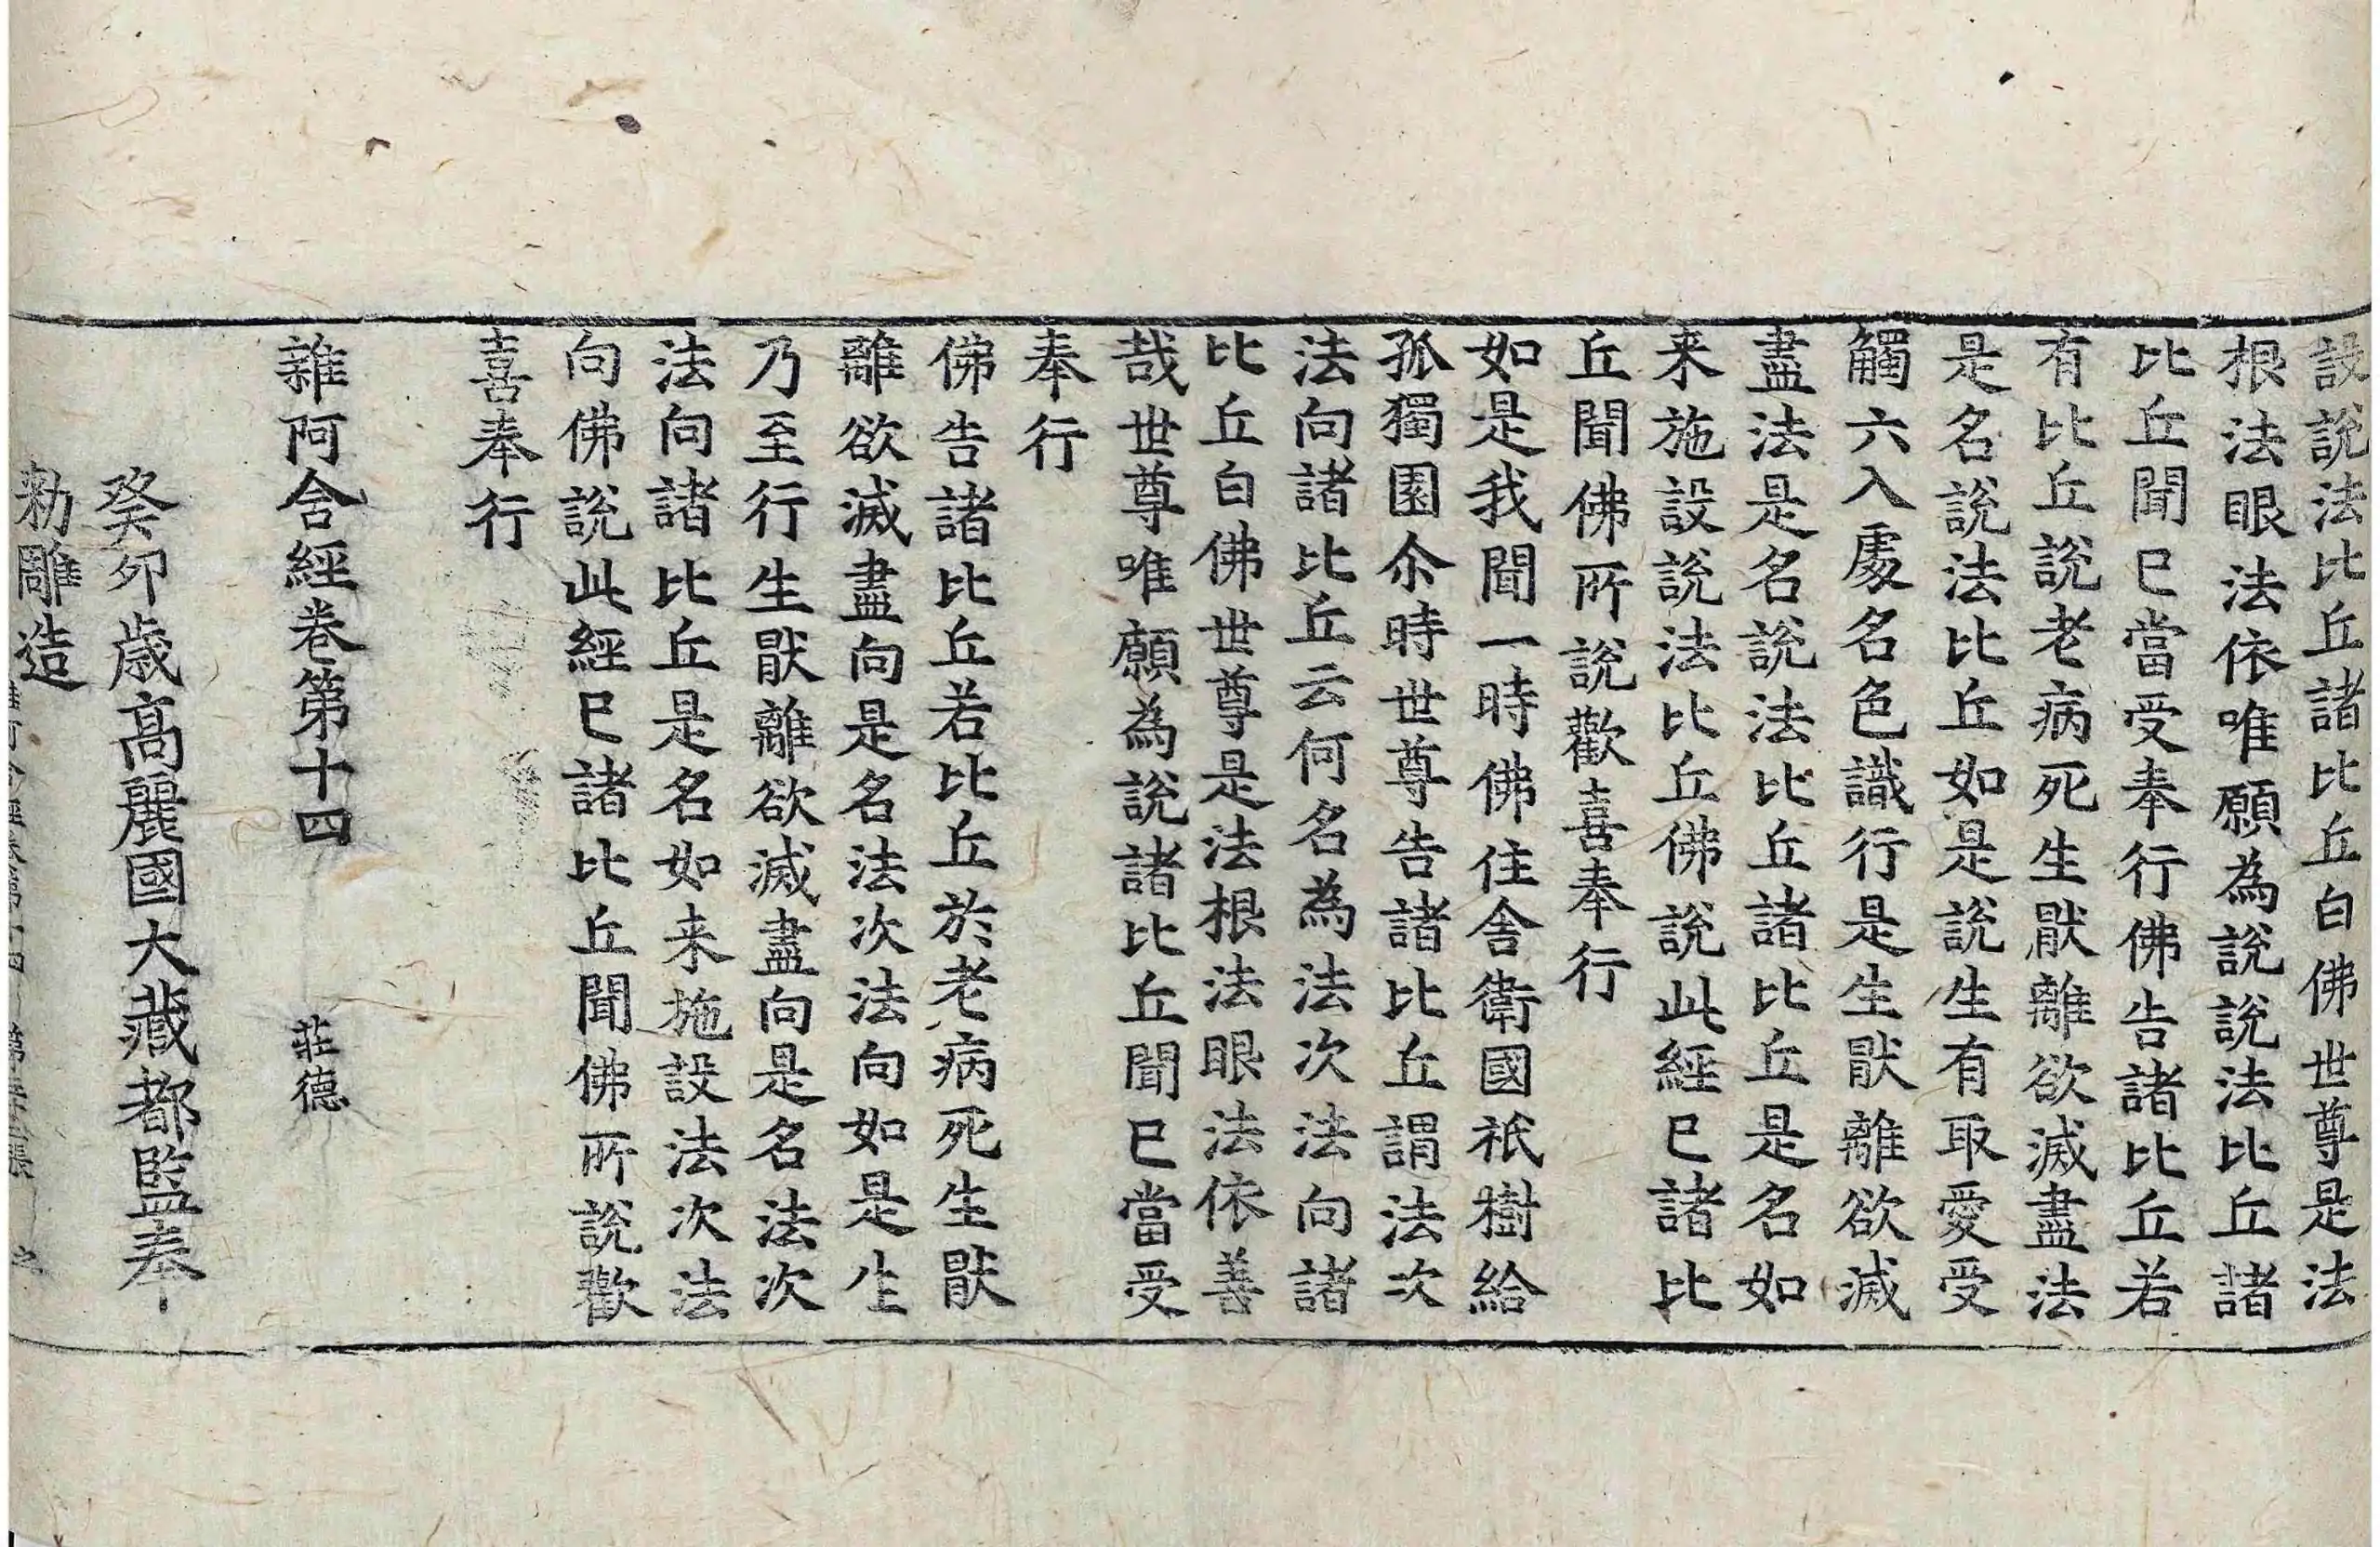 設說法比丘諸比丘白佛世尊是法
根法眼法依唯願為說說法比丘諸
比丘聞已當受奉行佛告諸比丘若
有比丘說老病死生猒離欲滅盡法
是名說法比丘如是說生有取愛受
觸六入處名色識行是生猒離欲滅
盡法是名說法比丘諸比丘是名如
来施設說法比丘佛說此經已諸比
丘聞佛所說歡喜奉行
如是我聞一時佛住舍衛國祇樹給
孤獨園尒時世尊告諸比丘謂法次
法向諸比丘云何名為法次法向諸
比丘白佛世尊是法根法眼法依善
哉世尊唯願為說諸比丘聞已當受
奉行
佛告諸比丘若比丘於老病死生猒
離欲滅盡向是名法次法向如是生
乃至行生猒離欲滅盡向是名法次
法向諸比丘是名如来施設法次法
向佛說此經已諸比丘聞佛所說歡
喜奉行
雜阿含經卷第十四 莊德
癸卯歲高麗國大藏都監奉
勑雕造